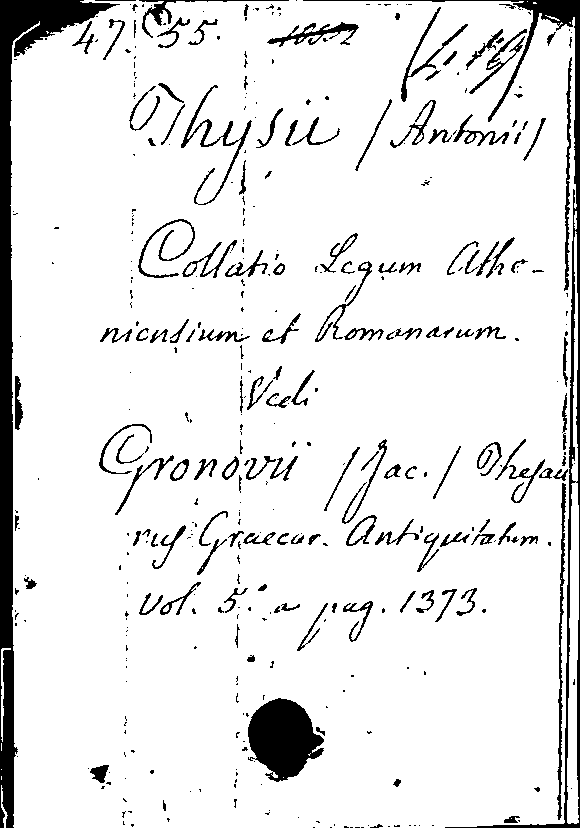 47. C 55.
Thysii / Antonii /
Collatio Legum Athe-
niensium et Romanarum.
Vedi
Gronovii / Jac. / Thesau
rus Graecar. Antiquitatum.
vol. 5.° a pag. 1373.